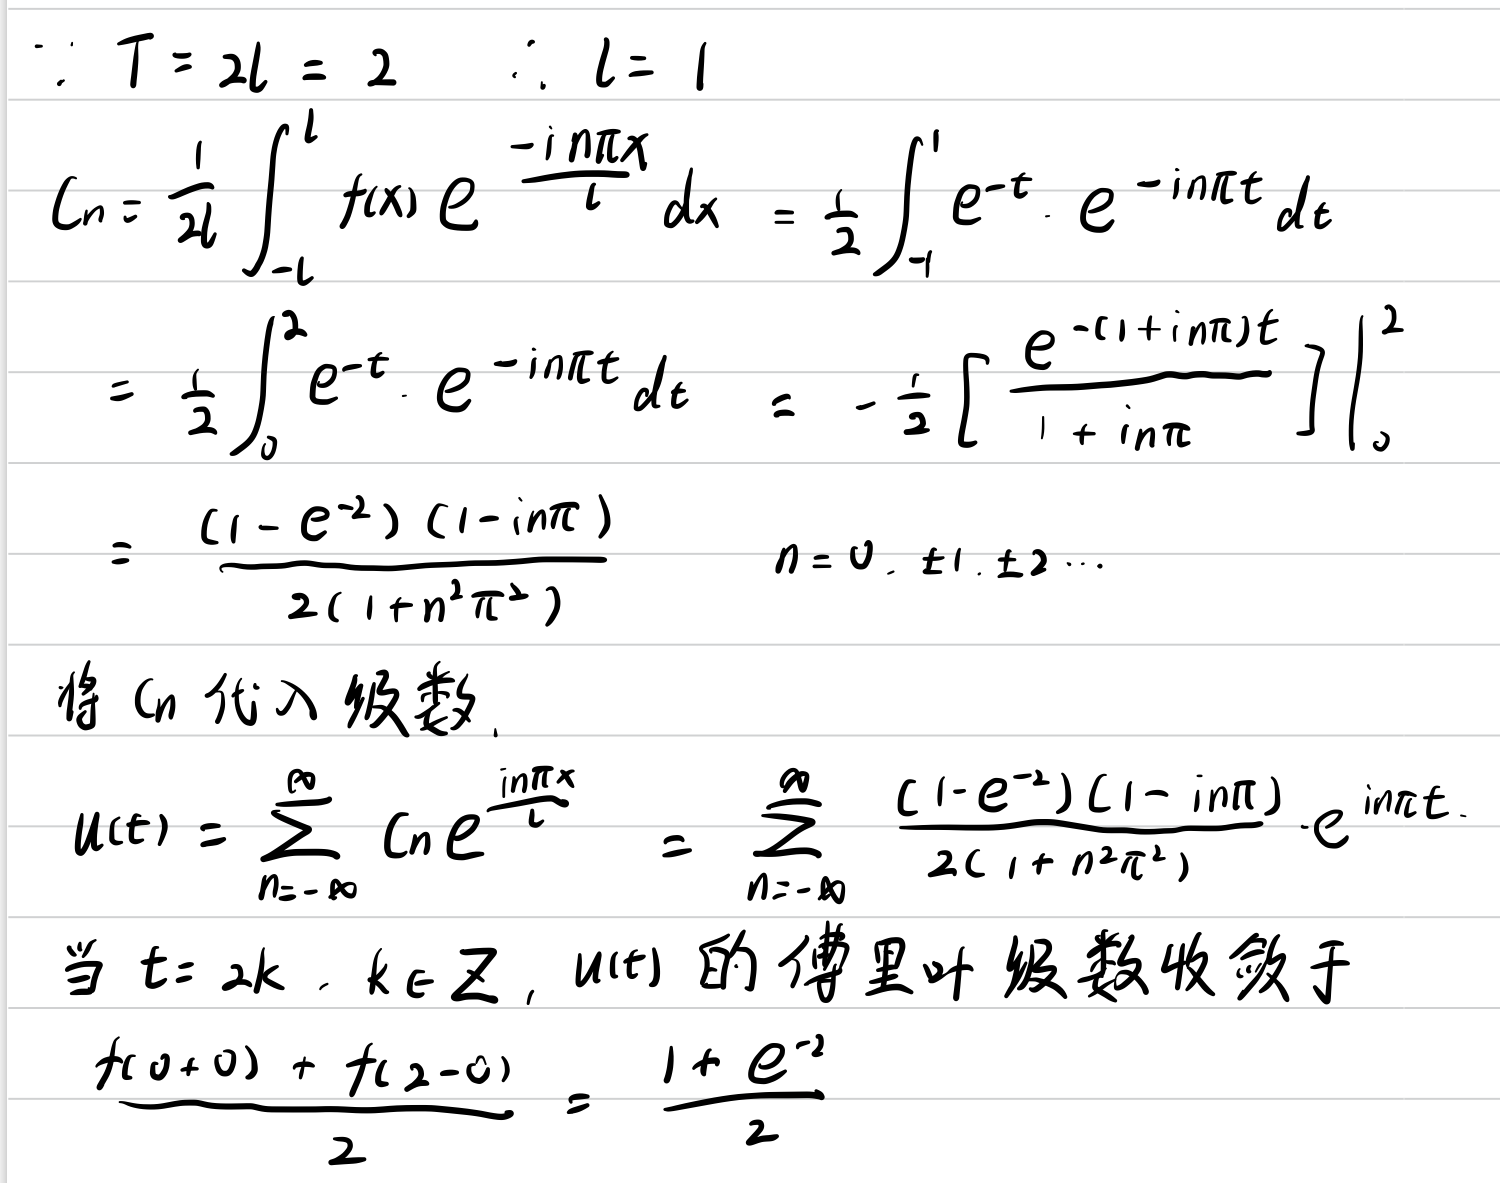 ∵ T = 2l = 2 ∴ l = 1
Cn = \frac{1}{2l} \int_{-l}^{l} f(x) e^{\frac{-inπx}{l}} dx = \frac{1}{2} \int_{-1}^{1} e^{-t} · e^{-inπt} dt
= \frac{1}{2} \int_{0}^{2} e^{-t} · e^{-inπt} dt = -\frac{1}{2} [ \frac{e^{-(1+inπ)t}}{1+inπ} ] |_{0}^{2}
= \frac{(1-e^{-2})(1-inπ)}{2(1+n^2π^2)} n = 0. ±1. ±2 ···
将 Cn 代入级数,
u(t) = \sum_{n=-∞}^{∞} Cn e^{\frac{inπx}{l}} = \sum_{n=-∞}^{∞} \frac{(1-e^{-2})(1-inπ)}{2(1+n^2π^2)} · e^{inπt}.
当 t = 2k. k∈Z, u(t) 的傅里叶级数收敛于
\frac{f(0+0) + f(2-0)}{2} = \frac{1+e^{-2}}{2}